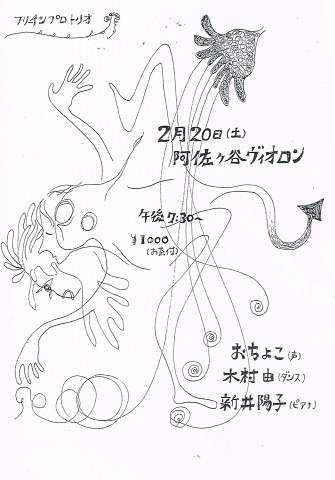 フリィンプロトリオ
2月20日(土)
阿佐ヶ谷ヴィオロン
午後7:30〜
¥1000
(お茶付)
おちょこ(声)
木村由(ダンス)
新井陽子(ピアノ)